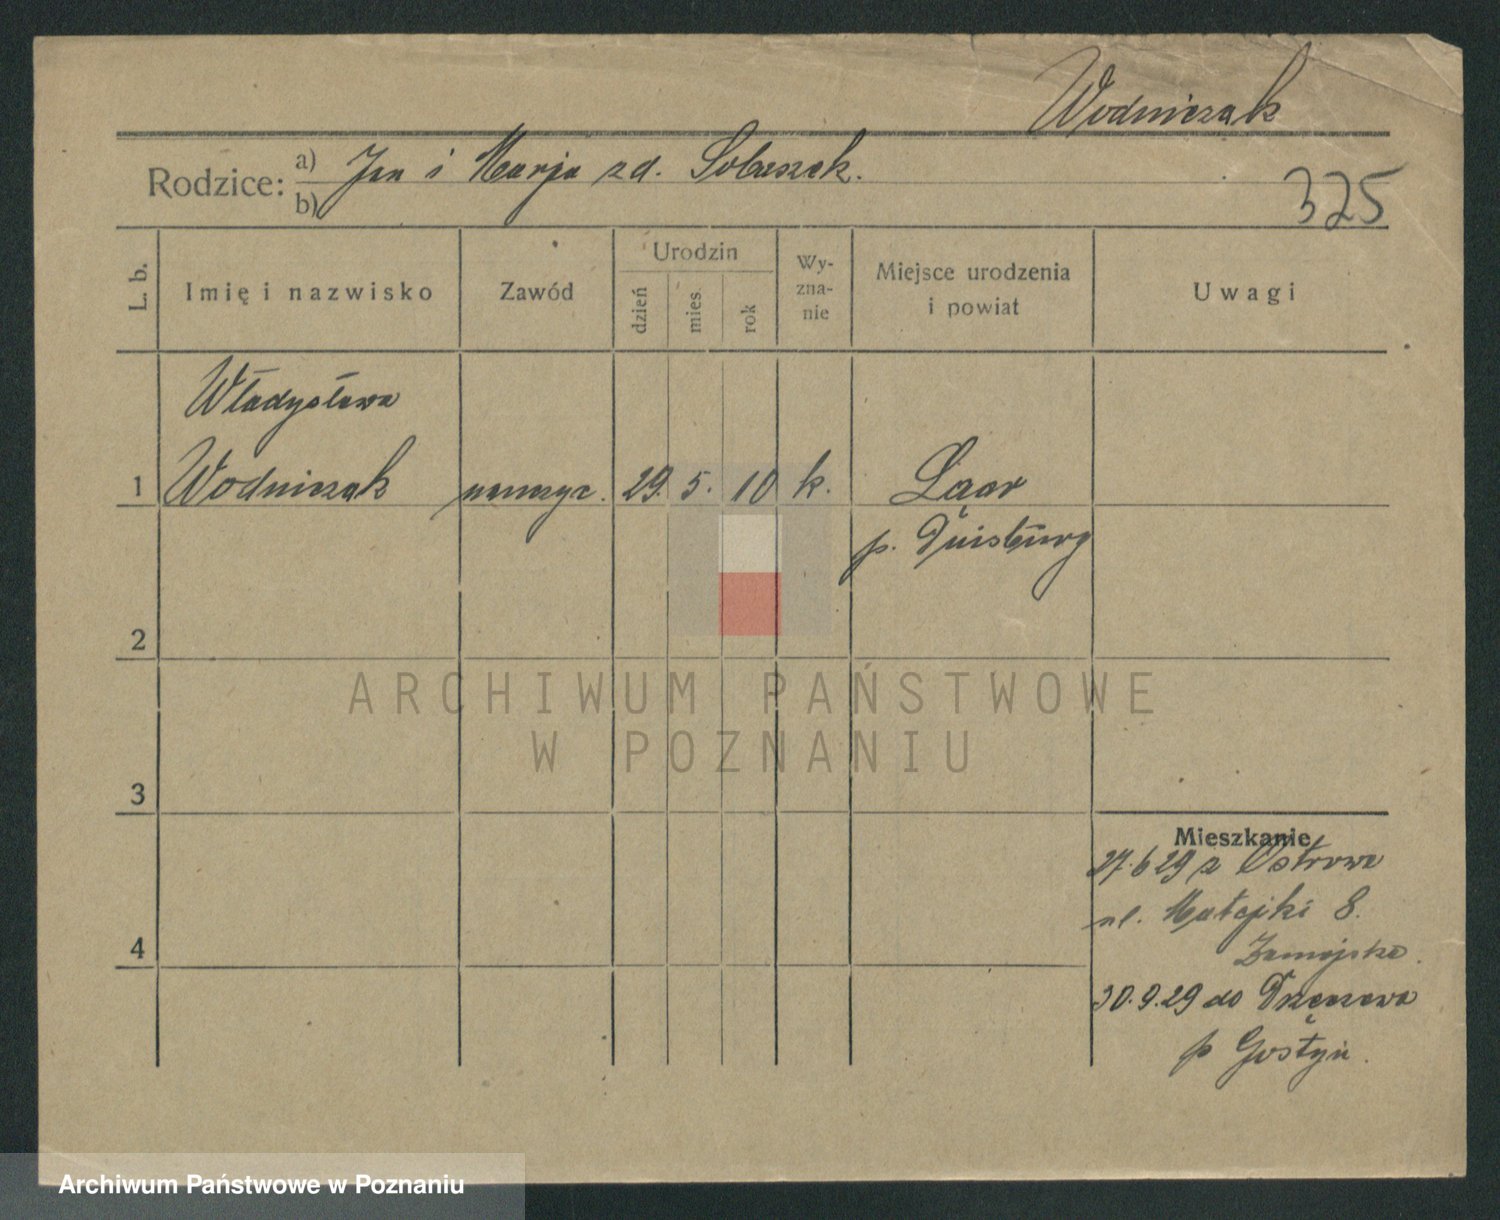 Wodniczak
Rodzice: a) Jan i Marja zd. Sobaszek.
b)
325
L. b.
Imię i nazwisko
Zawód
Urodzin
dzień
mies.
rok
Wy-
zna-
nie
Miejsce urodzenia
i powiat
Uwagi
Władysława
1 Wodniczak nauczyc. 29. 5. 10 k. Laar
p. Duisburg
2
3
4
Mieszkanie
27.6 29 z Ostrowa
ul. Matejki 8.
Zamojska.
30.9.29 do Drzęczewa
p Gostyń.
ARCHIWUM PAŃSTWOWE
W POZNANIU
Archiwum Państwowe w Poznaniu